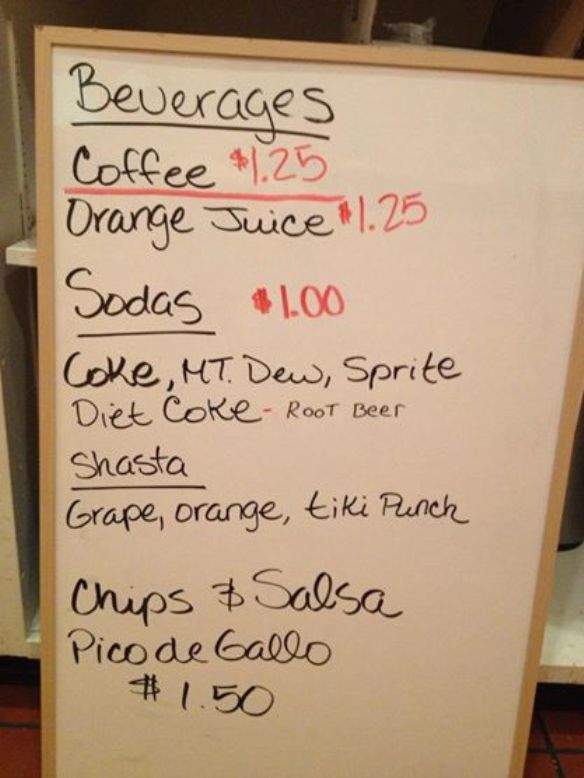 Beverages
Coffee $1.25
Orange Juice $1.25
Sodas $1.00
Coke, MT. Dew, Sprite
Diet Coke - Root Beer
Shasta
Grape, orange, tiki Punch
Chips & Salsa
Pico de Gallo
$1.50